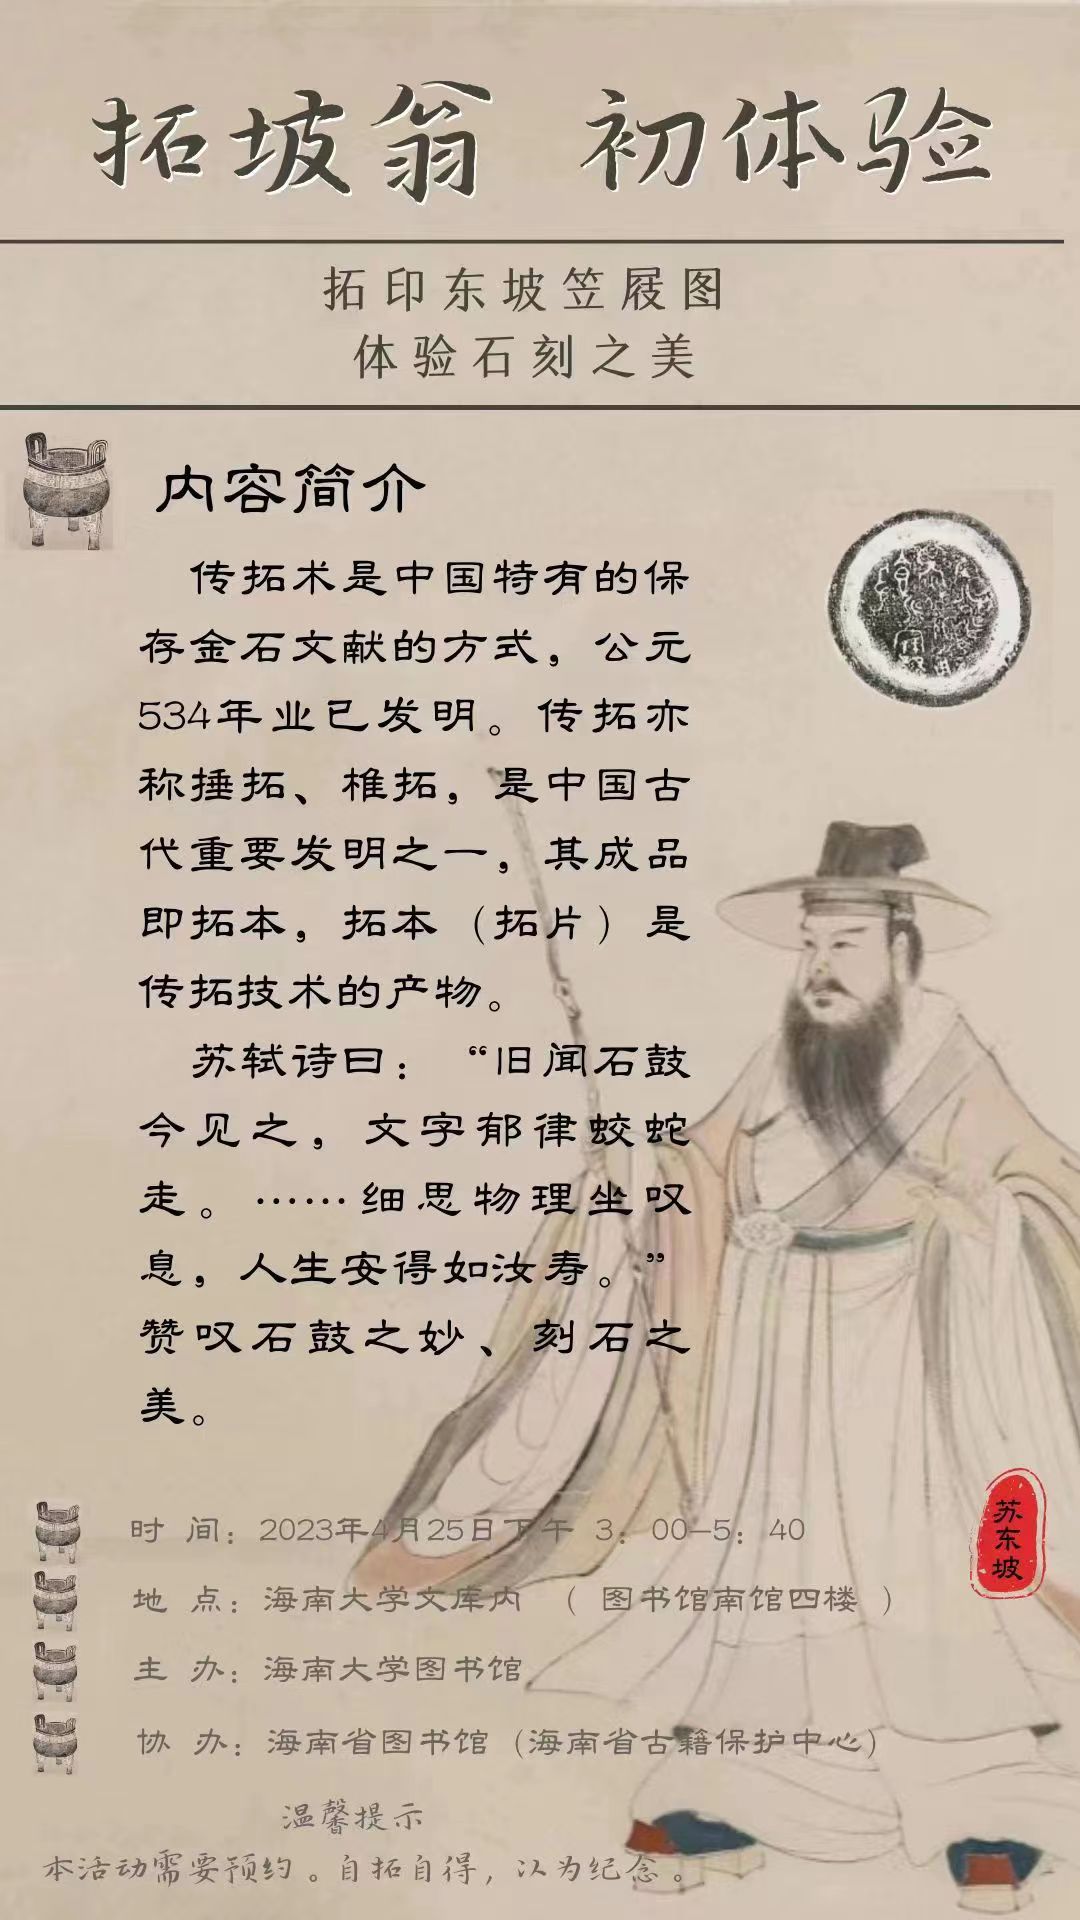 拓坡翁 初体验
拓印东坡笠屐图
体验石刻之美
内容简介
传拓术是中国特有的保
存金石文献的方式，公元
534年业已发明。传拓亦
称捶拓、椎拓，是中国古
代重要发明之一，其成品
即拓本，拓本（拓片）是
传拓技术的产物。
苏轼诗曰：“旧闻石鼓
今见之，文字郁律蛟蛇
走。……细思物理坐叹
息，人生安得如汝寿。”
赞叹石鼓之妙、刻石之
美。
苏东坡
时 间：2023年4月25日下午 3：00—5：40
地 点：海南大学文库内 （ 图书馆南馆四楼 ）
主 办：海南大学图书馆
协 办：海南省图书馆（海南省古籍保护中心）
温馨提示
本活动需要预约。自拓自得，以为纪念。